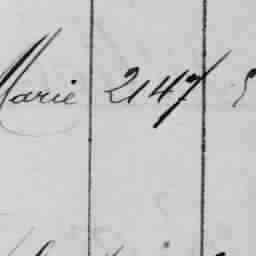 Marie 2147